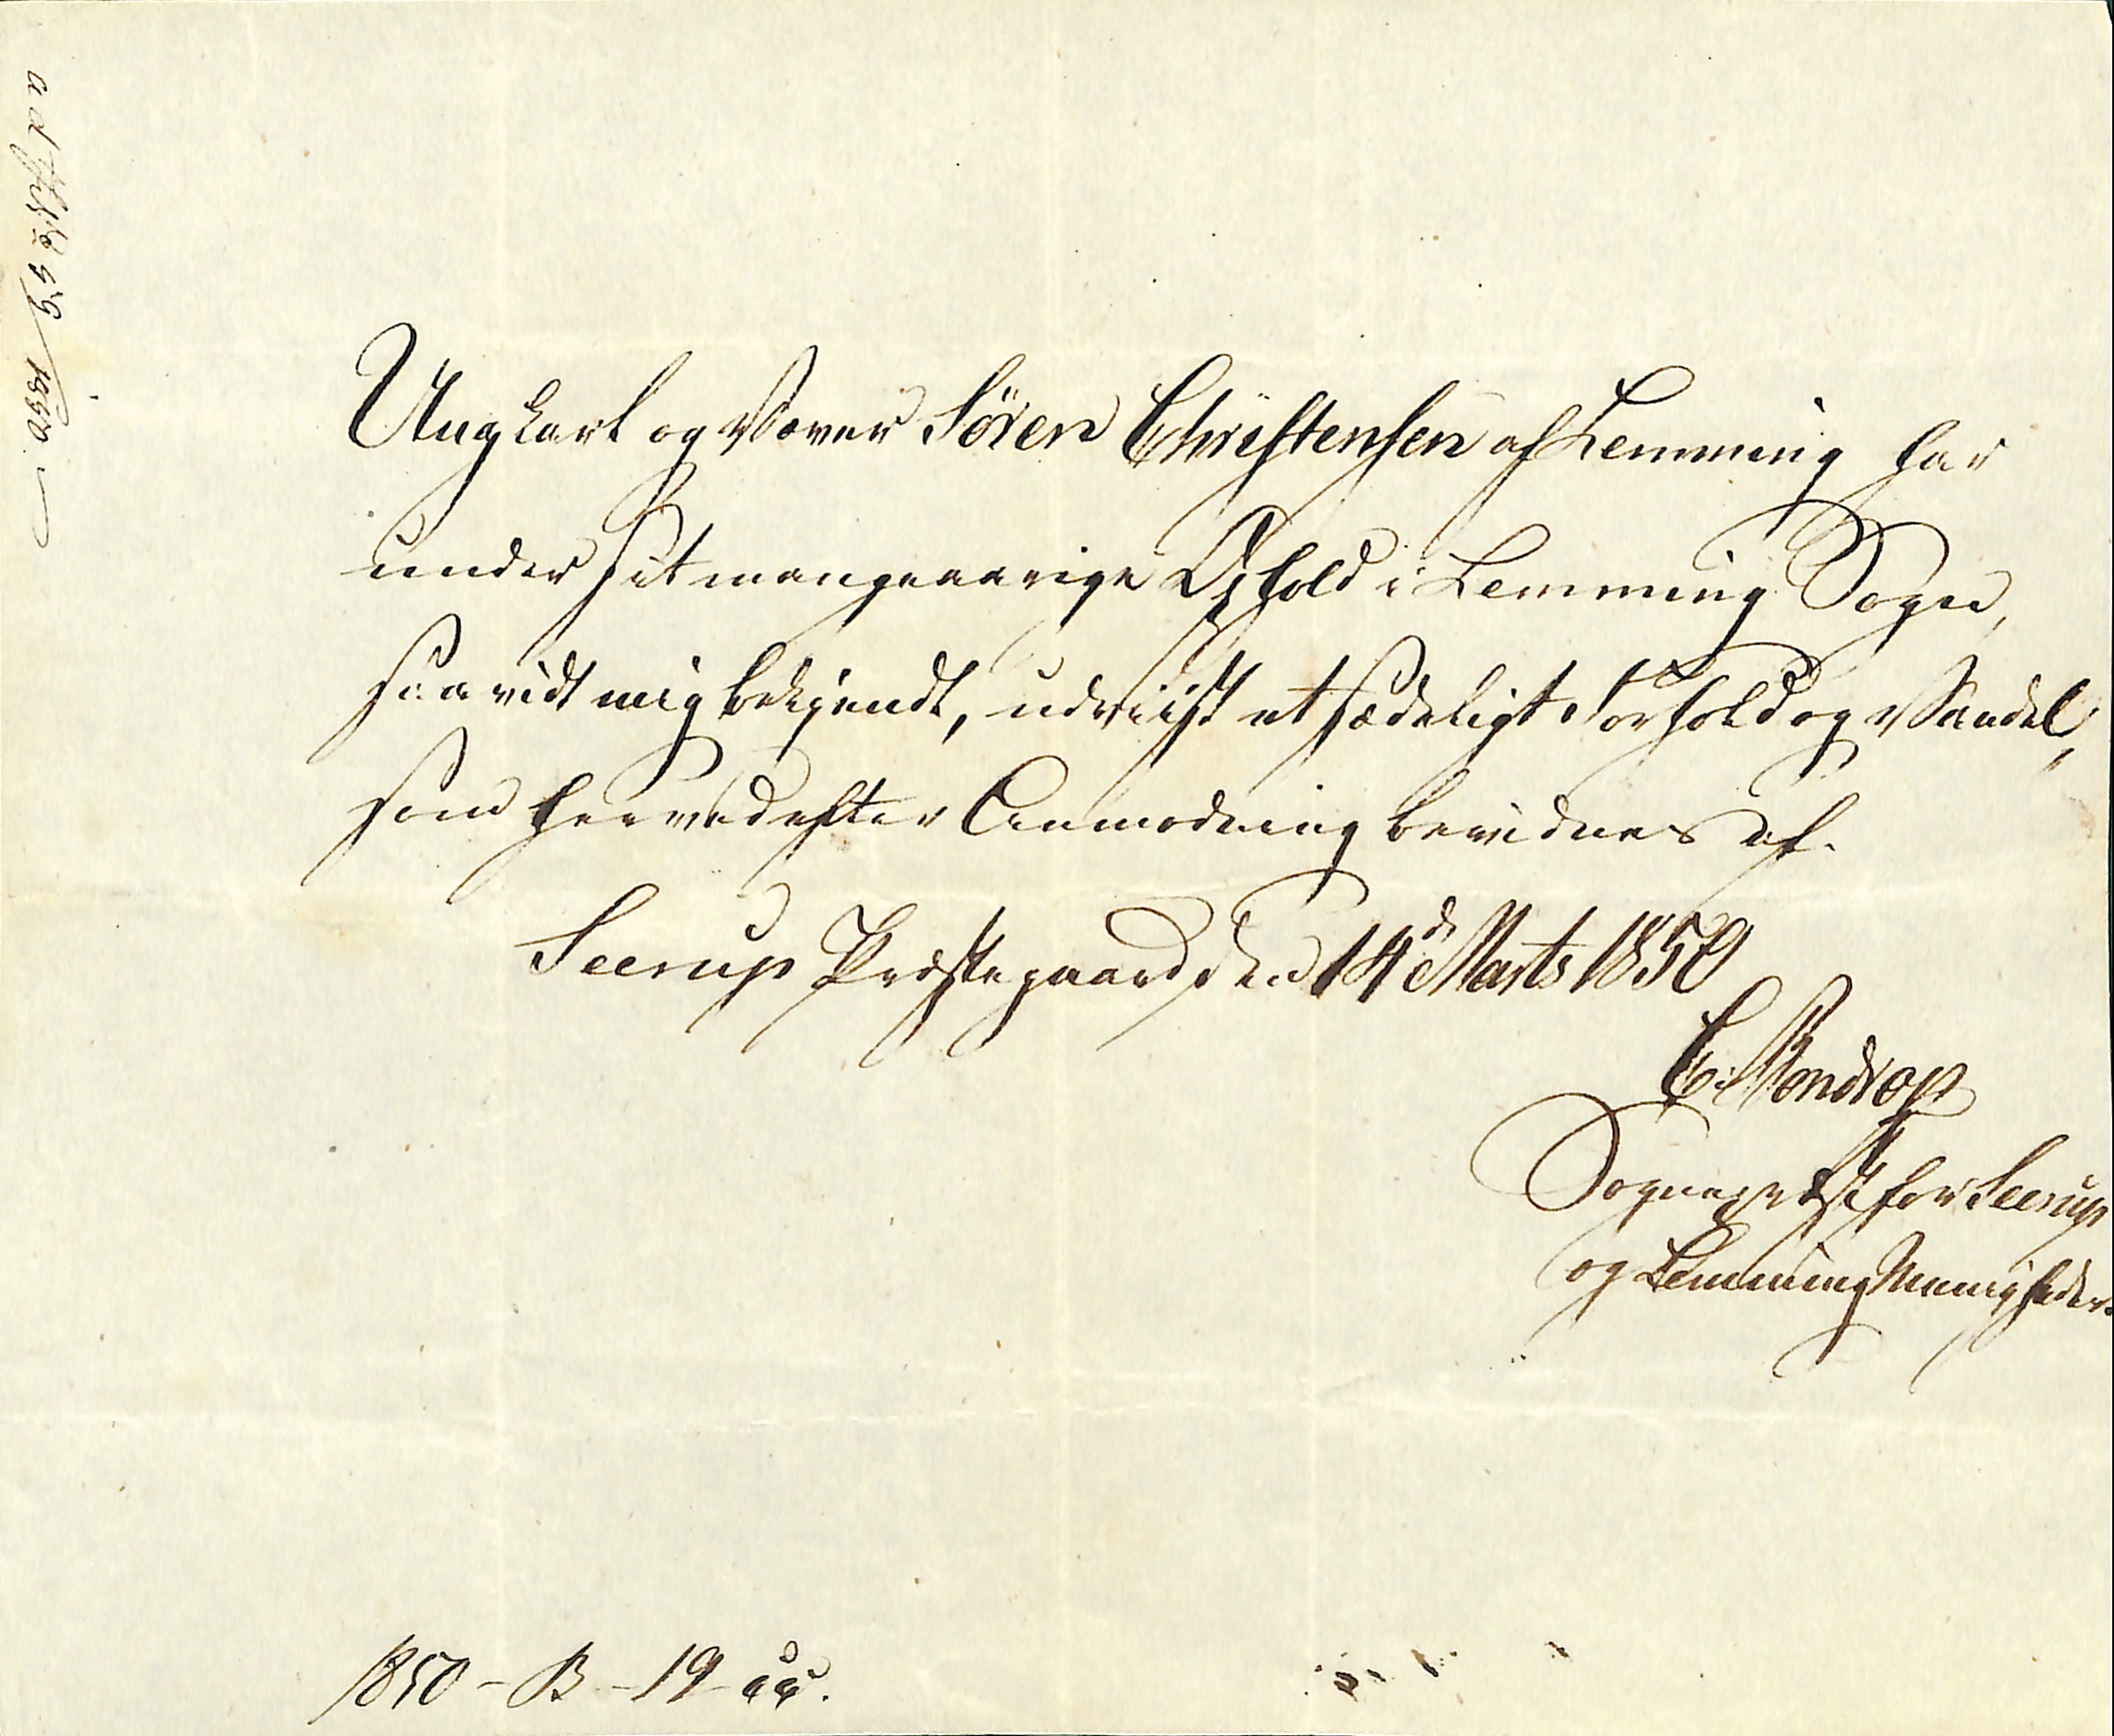 Ungkarl og Væver Søren Christensen af Lemming har
under sit mangeaarige Ophold i Lemming Sogn,
saavidt mig bekjendt, udviist et sædeligt Forhold og Vandel,
som herved efter Anmodning bevidnes af.
Seerup Præstegaard den 14de Marts 1850
C. Mondrop
Sognepræst for Seerup
og Lemming Menigheder.
1850 – B – 19
ad 1850